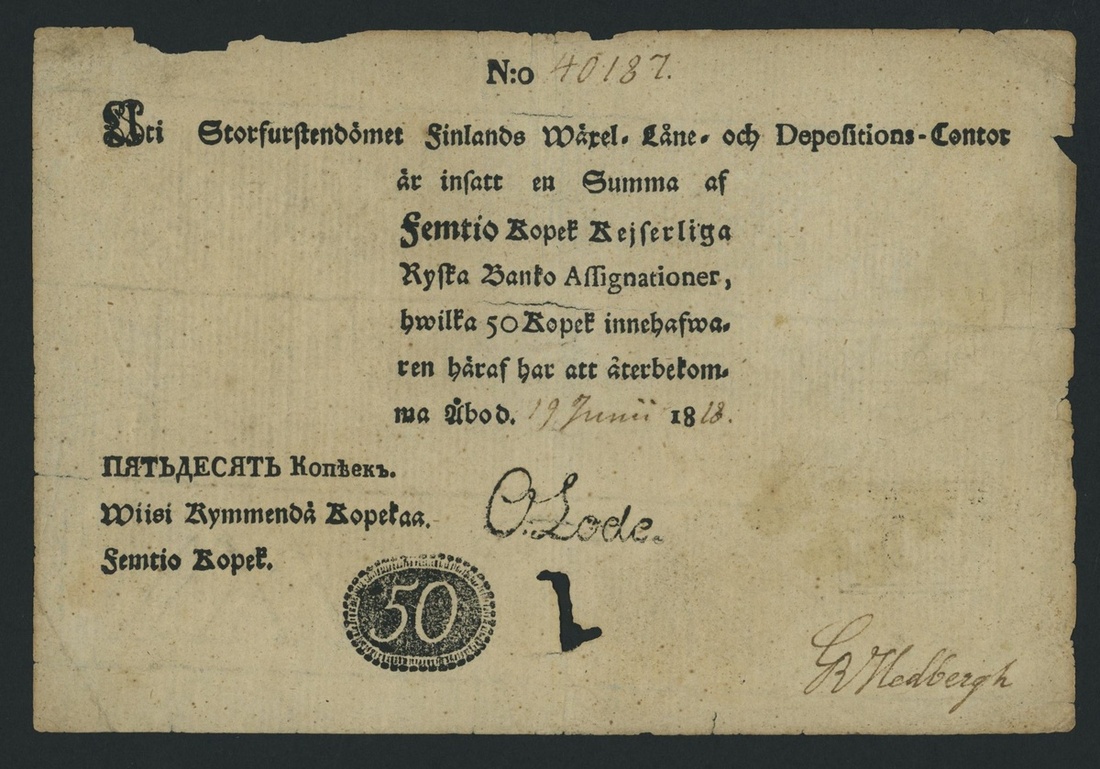 N:o 40187.
Uti Storfurstendömet Finlands Wäxel- Låne- och Depositions-Contor
är insatt en Summa af
Femtio Kopek Kejserliga
Ryska Banko Assignationer,
hwilka 50 Kopek innehafwa-
ren häraf har att återbekom-
ma Åbo d. 19 Junii 1818.
ПЯТЬДЕСЯТЬ Копѣекъ.
Wiisi Kymmendä Kopekaa.
Femtio Kopek.
O. Lode.
50
Hedbergh